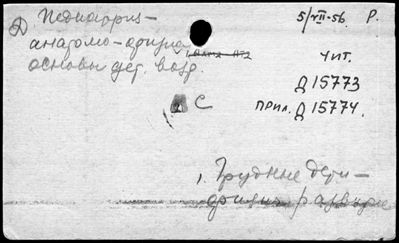 Д Педиатрия –
5/VII-56. Р.
анатомо-физиол
основы дет. возр.
Чит.
Д 15773
прил. Д 15774.
С
1. Грудные дети –
физич. развитие